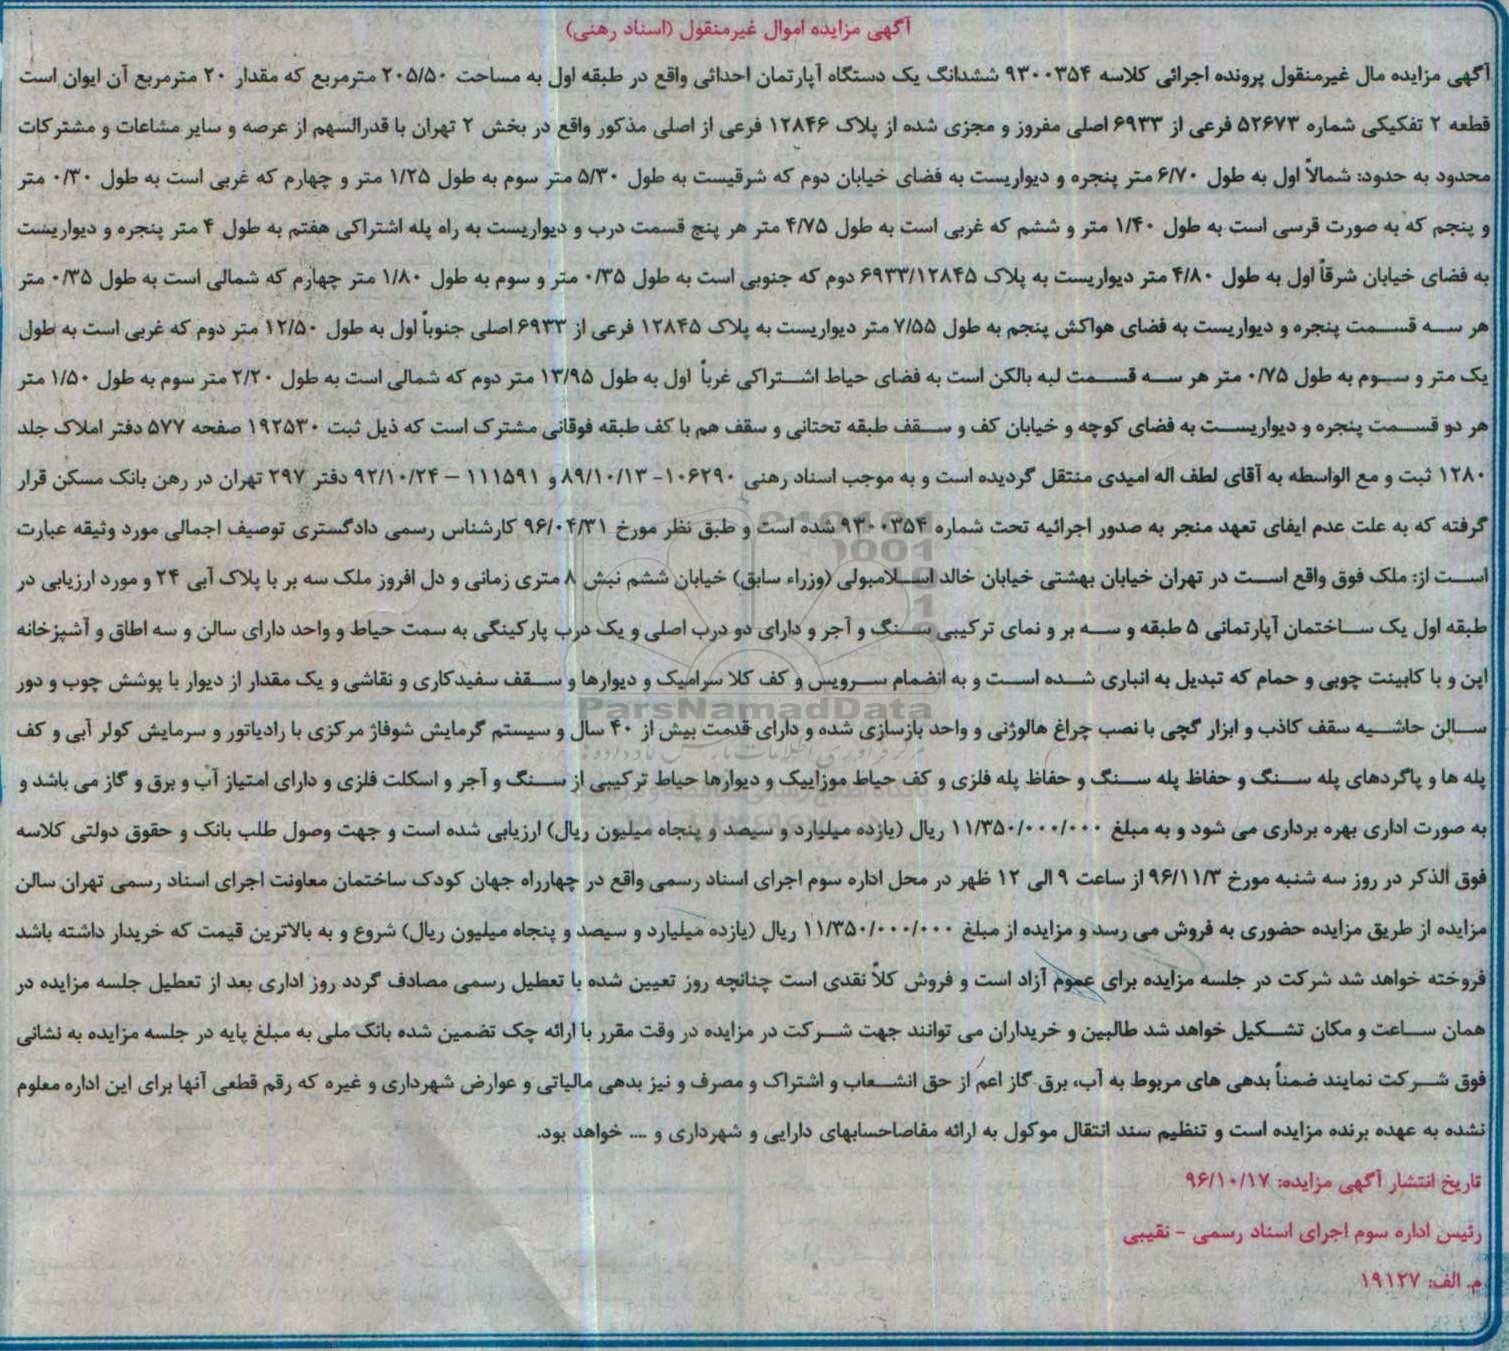 آگهی مزایده اموال غیرمنقول (اسناد رهنی)
آگهی مزایده مال غیرمنقول پرونده اجرائی کلاسه ۹۳۰۰۳۵۴ ششدانگ یک دستگاه آپارتمان احداثی واقع در طبقه اول به مساحت ۲۰۵/۵۰ مترمربع که مقدار ۲۰ مترمربع آن ایوان است
قطعه ۲ تفکیکی شماره ۵۲۶۷۳ فرعی از ۶۹۳۳ اصلی مفروز و مجزی شده از پلاک ۱۲۸۴۶ فرعی از اصلی مذکور واقع در بخش ۲ تهران با قدرالسهم از عرصه و سایر مشاعات و مشترکات
محدود به حدود: شمالاً اول به طول ۶/۷۰ متر پنجره و دیواریست به فضای خیابان دوم که شرقیست به طول ۵/۳۰ متر سوم به طول ۱/۲۵ متر و چهارم که غربی است به طول ۰/۳۰ متر
و پنجم که به صورت قرسی است به طول ۱/۴۰ متر و ششم که غربی است به طول ۴/۷۵ متر هر پنج قسمت درب و دیواریست به راه پله اشتراکی هفتم به طول ۴ متر پنجره و دیواریست
به فضای خیابان شرقاً اول به طول ۴/۸۰ متر دیواریست به پلاک ۶۹۳۳/۱۲۸۴۵ دوم که جنوبی است به طول ۰/۳۵ متر و سوم به طول ۱/۸۰ متر چهارم که شمالی است به طول ۰/۳۵ متر
هر سه قسمت پنجره و دیواریست به فضای هواکش پنجم به طول ۷/۵۵ متر دیواریست به پلاک ۱۲۸۴۵ فرعی از ۶۹۳۳ اصلی جنوباً اول به طول ۱۲/۵۰ متر دوم که غربی است به طول
یک متر و سوم به طول ۰/۷۵ متر هر سه قسمت لبه بالکن است به فضای حیاط اشتراکی غرباً اول به طول ۱۳/۹۵ متر دوم که شمالی است به طول ۲/۲۰ متر سوم به طول ۱/۵۰ متر
هر دو قسمت پنجره و دیواریست به فضای کوچه و خیابان کف و سقف طبقه تحتانی و سقف هم با کف طبقه فوقانی مشترک است که ذیل ثبت ۱۹۲۵۳۰ صفحه ۵۷۷ دفتر املاک جلد
۱۲۸۰ ثبت و مع الواسطه به آقای لطف اله امیدی منتقل گردیده است و به موجب اسناد رهنی ۱۰۶۲۹۰- ۸۹/۱۰/۱۳ و ۱۱۱۵۹۱ – ۹۲/۱۰/۲۴ دفتر ۲۹۷ تهران در رهن بانک مسکن قرار
گرفته که به علت عدم ایفای تعهد منجر به صدور اجرائیه تحت شماره ۹۳۰۰۳۵۴ شده است و طبق نظر مورخ ۹۶/۰۴/۳۱ کارشناس رسمی دادگستری توصیف اجمالی مورد وثیقه عبارت
است از: ملک فوق واقع است در تهران خیابان بهشتی خیابان خالد اسلامبولی (وزراء سابق) خیابان ششم نبش ۸ متری زمانی و دل افروز ملک سه بر با پلاک آبی ۲۴ و مورد ارزیابی در
طبقه اول یک ساختمان آپارتمانی ۵ طبقه و سه بر و نمای ترکیبی سنگ و آجر و دارای دو درب اصلی و یک درب پارکینگی به سمت حیاط و واحد دارای سالن و سه اطاق و آشپزخانه
اپن و با کابینت چوبی و حمام که تبدیل به انباری شده است و به انضمام سرویس و کف کلا سرامیک و دیوارها و سقف سفیدکاری و نقاشی و یک مقدار از دیوار با پوشش چوب و دور
سالن حاشیه سقف کاذب و ابزار گچی با نصب چراغ هالوژنی و واحد بازسازی شده و دارای قدمت بیش از ۴۰ سال و سیستم گرمایش شوفاژ مرکزی با رادیاتور و سرمایش کولر آبی و کف
پله ها و پاگردهای پله سنگ و حفاظ پله سنگ و حفاظ پله فلزی و کف حیاط موزاییک و دیوارها حیاط ترکیبی از سنگ و آجر و اسکلت فلزی و دارای امتیاز آب و برق و گاز می باشد و
به صورت اداری بهره برداری می شود و به مبلغ ۱۱/۳۵۰/۰۰۰/۰۰۰ ریال (یازده میلیارد و سیصد و پنجاه میلیون ریال) ارزیابی شده است و جهت وصول طلب بانک و حقوق دولتی کلاسه
فوق الذکر در روز سه شنبه مورخ ۹۶/۱۱/۳ از ساعت ۹ الی ۱۲ ظهر در محل اداره سوم اجرای اسناد رسمی واقع در چهارراه جهان کودک ساختمان معاونت اجرای اسناد رسمی تهران سالن
مزایده از طریق مزایده حضوری به فروش می رسد و مزایده از مبلغ ۱۱/۳۵۰/۰۰۰/۰۰۰ ریال (یازده میلیارد و سیصد و پنجاه میلیون ریال) شروع و به بالاترین قیمت که خریدار داشته باشد
فروخته خواهد شد شرکت در جلسه مزایده برای عموم آزاد است و فروش کلاً نقدی است چنانچه روز تعیین شده با تعطیل رسمی مصادف گردد روز اداری بعد از تعطیل جلسه مزایده در
همان ساعت و مکان تشکیل خواهد شد طالبین و خریداران می توانند جهت شرکت در مزایده در وقت مقرر با ارائه چک تضمین شده بانک ملی به مبلغ پایه در جلسه مزایده به نشانی
فوق شرکت نمایند ضمناً بدهی های مربوط به آب، برق گاز اعم از حق انشعاب و اشتراک و مصرف و نیز بدهی مالیاتی و عوارض شهرداری و غیره که رقم قطعی آنها برای این اداره معلوم
نشده به عهده برنده مزایده است و تنظیم سند انتقال موکول به ارائه مفاصاحسابهای دارایی و شهرداری و .... خواهد بود.
تاریخ انتشار آگهی مزایده: ۹۶/۱۰/۱۷
رئیس اداره سوم اجرای اسناد رسمی - نقیبی
م. الف: ۱۹۱۲۷
ParsNamadData